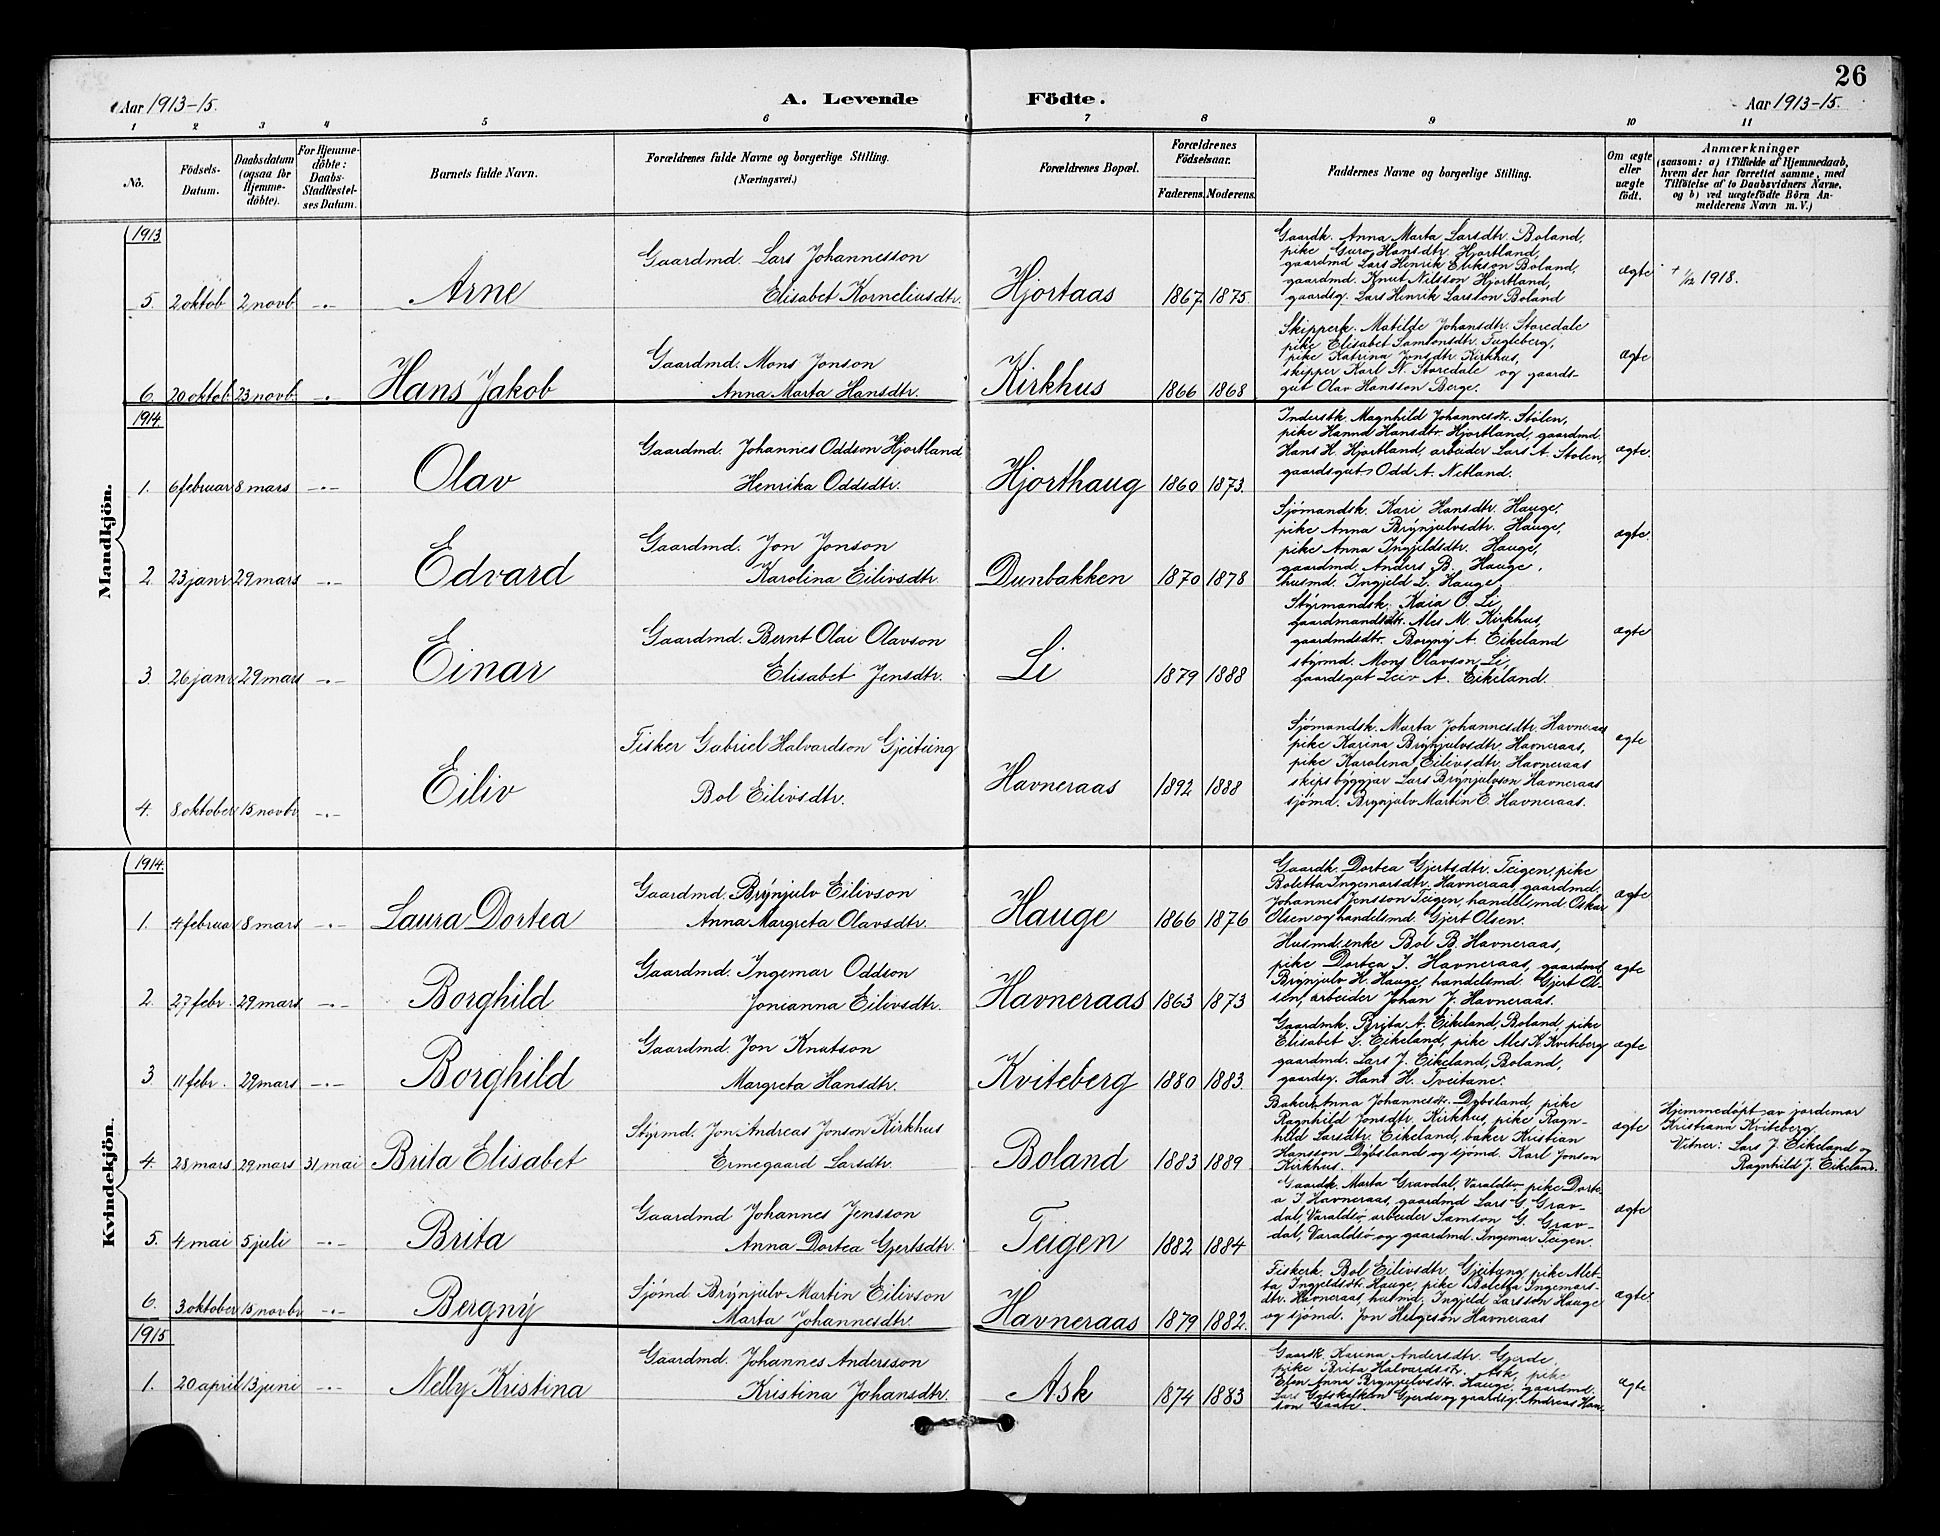 26
Aar 1913-15.
A. Levende Födte.
Aar 1913-15.
1 2 3 4 5 6 7 8 9 10 11
No.
Födsels-Datum.
Daabsdatum (ogsaa for Hjemme-döbte).
For Hjemme-döbte: Daabs-Stadfæstel-ses Datum.
Barnets fulde Navn.
Forældrenes fulde Navne og borgerlige Stilling.
(Næringsvei.)
Forældrenes Bopæl.
Forældrenes Födselsaar.
Faderens. Moderens.
Faddernes Navne og borgerlige Stilling.
Om ægte eller uægte födt.
Anmærkninger
(saasom: a) i Tilfælde af Hjemmedaab,
hvem der har forrettet samme, med
Tilföielse af to Daabsvidners Navne,
og b) ved uægtefödte Börn An-
melderens Navn m. V.)
Mandkjön.
1913
5. 2 oktob 2 novb. -„- Arne
Gaardmd. Lars Johannesson
Elisabet Korneliusdtr.
Hjortaas 1867 1875.
Gaardk. Anna Marta Larsdtr. Boland,
pike Guro Hansdtr. Hjortland,
gaardmd Lars Henrik Erikson Boland,
gaardmd. Knut Nilsson Hjortland,
gaardsg. Lars Henrik Larsson Boland
ægte
+ 1/12 1918.
6. 20 oktob. 23 novb. -„- Hans Jakob
Gaardmd. Mons Jonson
Anna Marta Hansdtr.
Kirkhus 1866 1868
Skipperk. Matilde Johansdtr. Storedale
pike Elisabet Samsonsdtr. Fugleberg,
pike Katrina Jensdtr Kirkhus,
skipper Karl N. Storedale og gaards-
gut Olav Hansson Berge.
ægte
1914
1. 6 februar 8 mars -„- Olav
Gaardmd. Johannes Oddson Hjortland
Henrika Oddsdtr.
Hjorthaug 1860 1873.
Inderstk. Magnhild Johannesdtr. Stølen,
pike Hanna Hansdtr. Hjortland, gaardmd.
Hans H. Hjortland, arbeider Lars A. Stølen,
gaardsgut Odd A. Netland.
ægte.
2. 23 janr 29 mars -„- Edvard
Gaardmd. Jon Jonson
Karolina Eilivsdtr.
Dunbakken 1870 1878
Sjømandsk. Kari Hansdtr. Hauge,
pike Anna Brynjulvsdtr. Hauge,
pike Anna Ingjeldsdtr. Hauge,
gaardmd. Anders B. Hauge,
husmd. Ingjeld L. Hauge
ægte.
3. 26 janr 29 mars -„- Einar
Gaardmd. Bernt Olai Olavson
Elisabet Jensdtr.
Li 1879 1888
Styrmandsk. Kaia O. Li,
gaardmandsdtr. Ales M. Kirkhus,
gaardmdsdtr. Borgny A. Eikeland
styrmd. Mons Olavson Li,
gaardsgut Leiv A. Eikeland.
ægte
4. 8 oktober 15 novbr -„- Eiliv
Fisker Gabriel Halvardson Gjeitung
Bol Eilivsdtr.
Havneraas 1892 1888
Sjømandsk. Marta Johannesdtr. Havneraas
pike Karina Brynjulvsdtr. Havneraas,
pike Karolina Eilivsdtr. Havneraas
skipsbyggjar Lars Brynjulvson Havneraas
sjømd. Brynjulv Martin E. Havneraas.
ægte
Kvindekjön.
1914.
1. 4 februar 8 mars -„- Laura Dortea
Gaardmd. Brynjulv Eilivson
Anna Margreta Olavsdtr.
Hauge 1866 1876
Gaardk. Dortea Gjertsdtr. Teigen, pike
Boletta Ingemarsdtr. Havneraas, gaardmd.
Johannes Jensson Teigen, handelsmd Oskar
Olsen og handelsmd. Gjert Olsen.
ægte
2. 27 febr. 29 mars -„- Borghild
Gaardmd. Ingemar Oddson
Jonianna Eilivsdtr.
Havneraas 1863 1873
Husmd.enke Bol B. Havneraas,
pike Dortea I. Havneraas, gaardmd.
Brynjulv H. Hauge, handelsmd. Gjert Ol-
sen, arbeider Johan J. Havneraas.
ægte
3. 11 febr. 29 mars -„- Borghild
Gaardmd. Jon Knutson
Margreta Hansdtr.
Kviteberg 1880 1883.
Gaardmk. Brita A. Eikeland, Boland, pike
Elisabet L. Eikeland, pike Ales K. Kviteberg
gaardmd. Lars J. Eikeland, Boland,
gaardsg. Hans H. Tveitane.
ægte
4. 28 mars 29 mars 31 mai Brita Elisabet
Styrmd. Jon Andreas Jonson Kirkhus
Ermegaard Larsdtr.
Boland 1883 1889
Bakerk. Anna Johannesdtr. Dybsland, pike
Ragnhild Jonsdtr. Kirkhus, pike Ragn-
hild Larsdtr. Eikeland, baker Kristian
Hansson Dybsland og sjømd. Karl Jonson
Kirkhus.
ægte
Hjemmedøpt av jordemor
Kristiana Kviteberg.
Vitner: Lars J. Eikeland og
Ragnhild J. Eikeland.
5. 4 mai 5 juli -„- Brita
Gaardmd Johannes Jensson
Anna Dortea Gjertsdtr.
Teigen 1882 1884
Gaardk. Marta Gravdal, Varaldsø, pike Dorte-
a I. Havneraas, gaardmd Lars G. Grav-
dal, Varaldsø, arbeider Samson G. Grav-
dal, Varaldsø og gaardmd. Ingemar Teigen.
ægte
6. 3 oktober 15 novbr -„- Bergny
Sjømd Brynjulv Martin Eilivson
Marta Johannesdtr.
Havneraas 1879 1882.
Fiskerk. Bol Eilivsdtr. Gjeitung, pike Met-
ta Ingjeldsdtr. Hauge, pike Boletta Ingemars-
dtr. Havneraas, husmd. Ingjeld Larsson Hauge
og sjømd. Jon Helgeson Havneraas
ægte
1915
1. 20 april 13 juni -„- Nelly Kristina
Gaardmd. Johannes Andersson
Kristina Johansdtr.
Ask 1874 1883
Gaardk. Karina Andersdtr. Gjerde,
pike Brita Halvardsdtr. Ask, pike
Anna Brynjulvsdtr. Hauge, gaardmd.
Lars Gjerde og gaardsg. Andreas Han-
son Gaate.
ægte